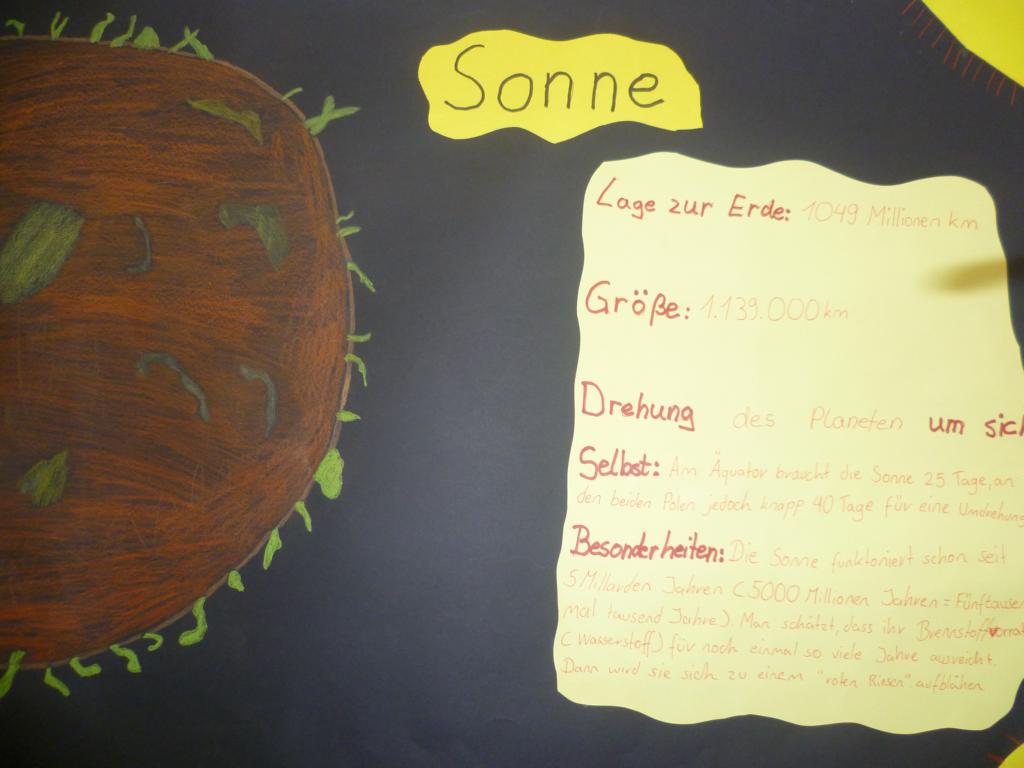 Sonne
Lage zur Erde: 1049 Millionen km
Größe: 1.139.000 km
Drehung des Planeten um sich
Selbst: Am Äquator braucht die Sonne 25 Tage, an
den beiden Polen jedoch knapp 40 Tage für eine Umdrehung
Besonderheiten: Die Sonne funktoniert schon seit
5 Millarden Jahren (5000 Millionen Jahren = Fünftausen
mal tausend Jahre). Man schätzt, dass ihr Brennstoffvorrat
(Wasserstoff) für noch einmal so viele Jahre ausreicht.
Dann wird sie sich zu einem "roten Riesen" aufblähen